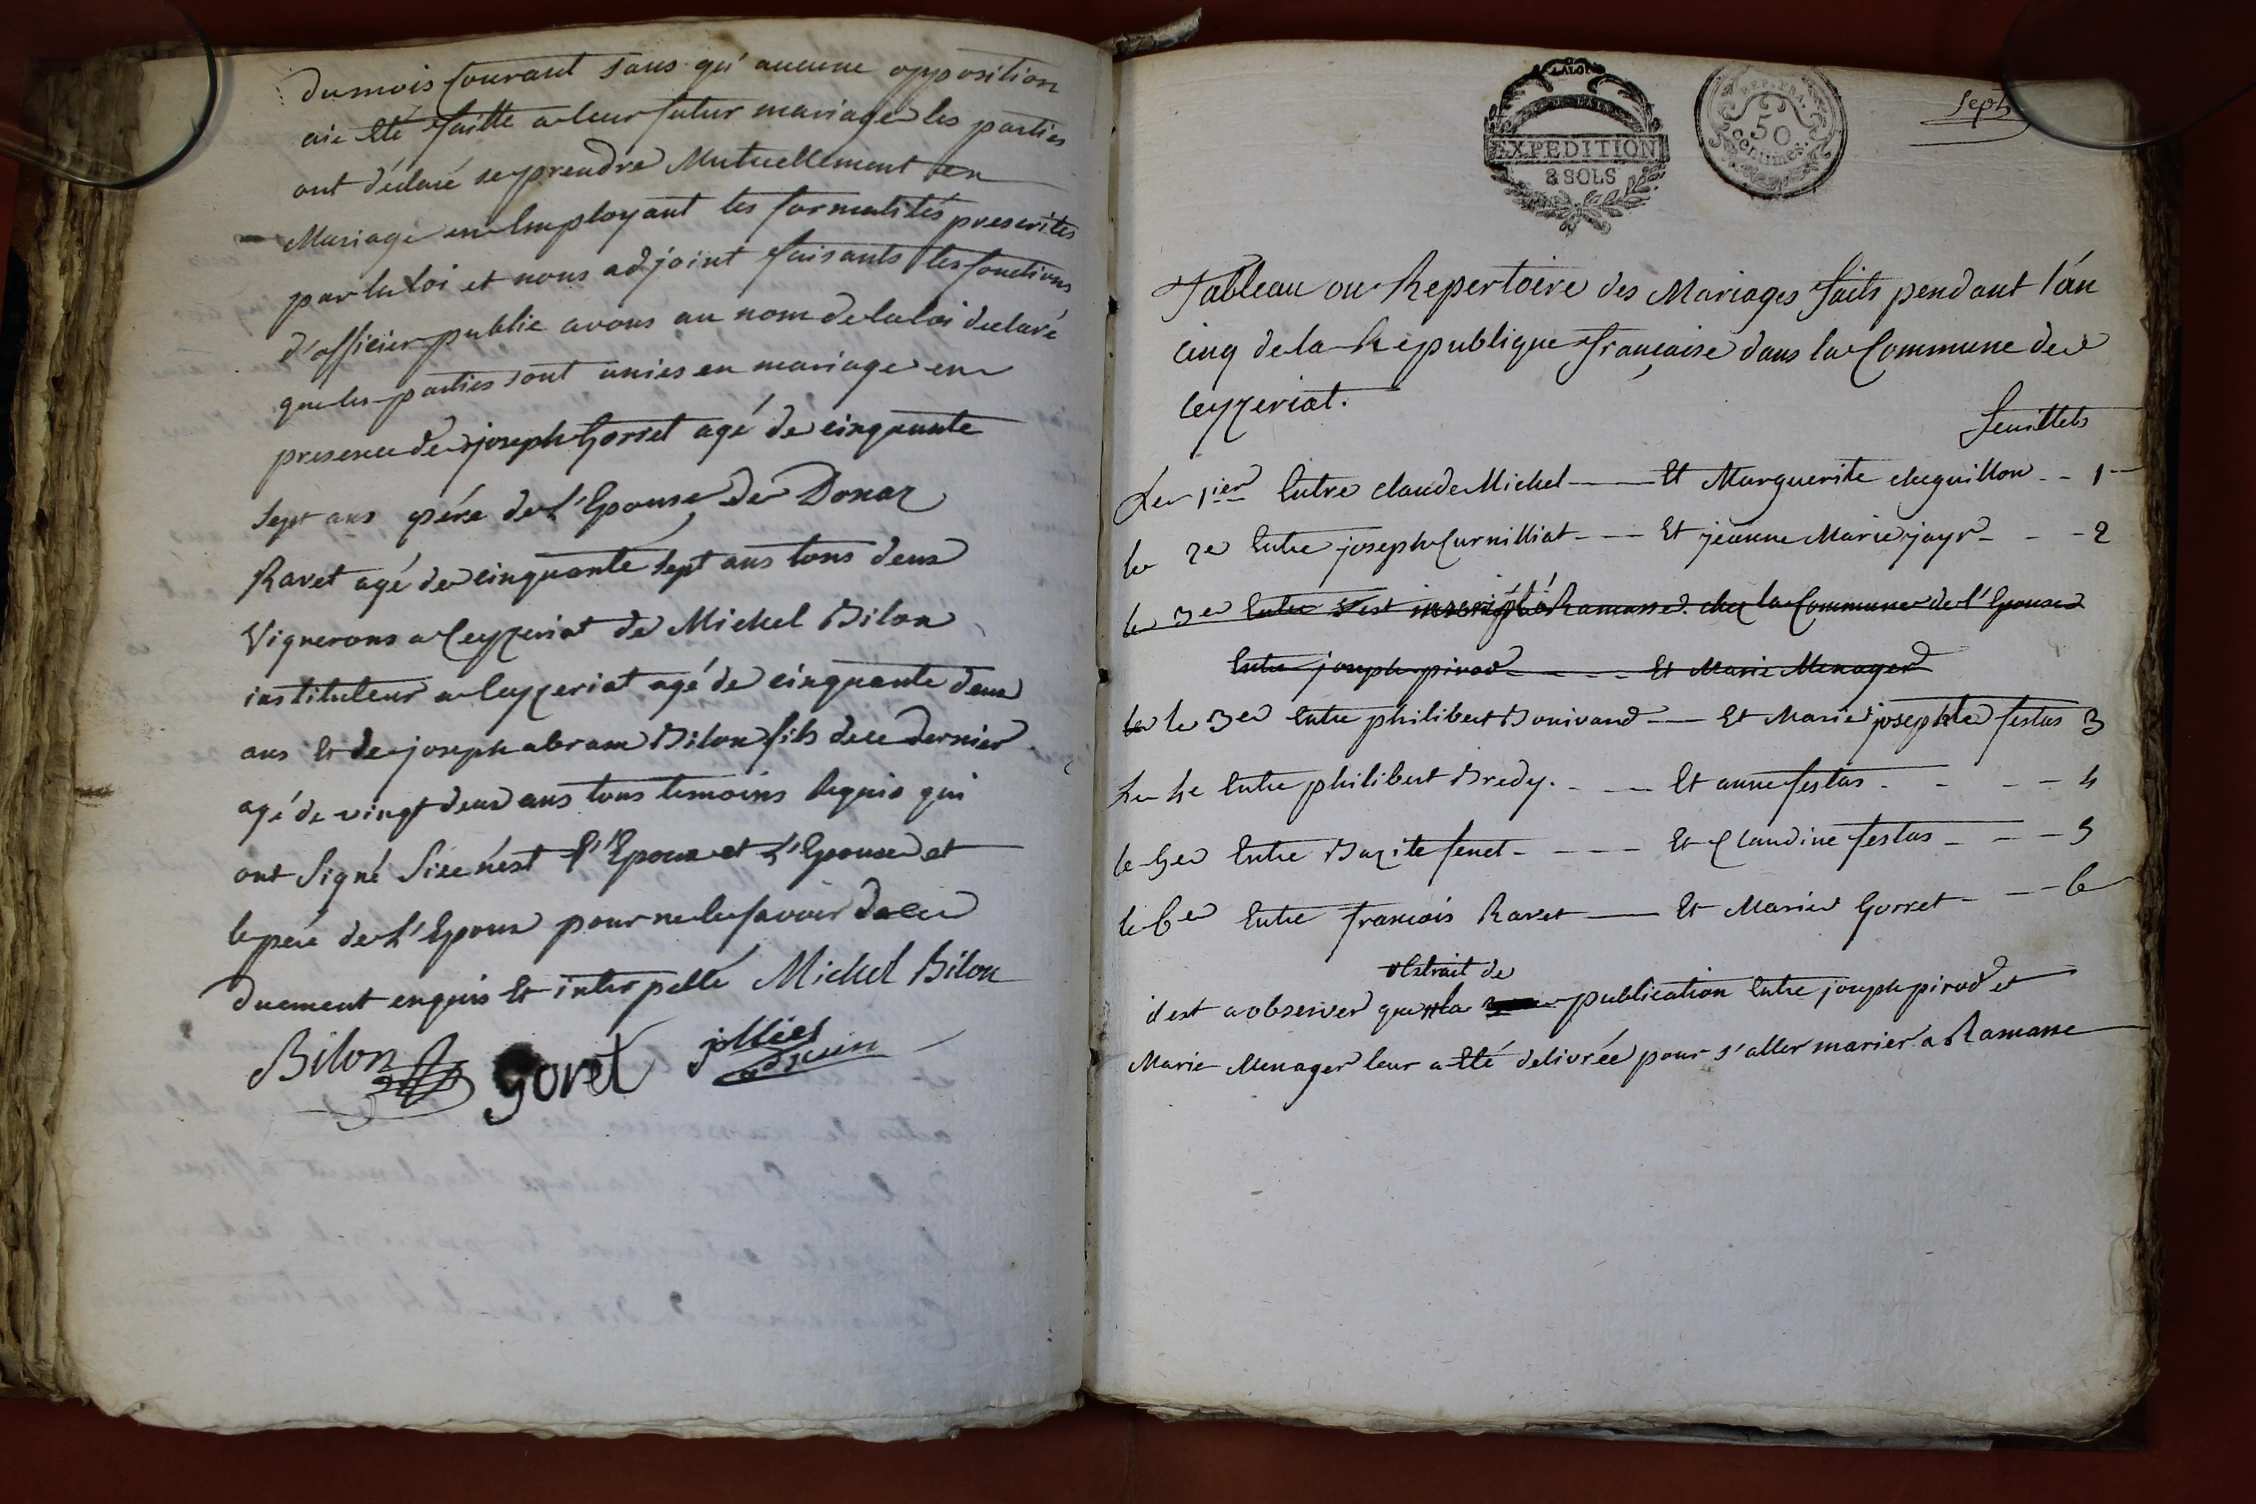 du mois courant sans qu'aucune opposition
aie été faitte a leur futur mariage les parties
ont déclaré se prendre Mutuellement en
Mariage en Employant les formalités prescrites
par la loi et nous adjoint faisants les fonctions
d'officier public avons au nom de la loi declaré
que les parties sont unies en mariage en
presence de joseph Gorret agé de cinquante
sept ans pére de L'Epouse de Donaz
Ravet agé de cinquante sept ans tous deux
Vignerons a Ceyzeriat de Michel Bilon
instituteur a Ceyzeriat agé de cinquante deux
ans Et de joseph abram Bilon fils de ce dernier
agé de vingt deux ans tous temoins Requis qui
ont Signé Si ce n'est l'Epoux et L'Epouse et
le peré de L'Epoux pour ne le savoir de ce
duement enquis Et interpellé Michel Bilon
Bilon Goret adjoin
LALOI
EXPEDITION
8 SOLS
REP. FRA.
50
Centimes
Sept
Tableau ou Repertoire des Mariages faits pendant l'an
cinq de la Republique française dans la Commune de
Ceyzeriat.
feuillets
Le 1ier Entre claude Michel Et Marguerite cheguillon 1
le 2e Entre joseph Curnilliat Et jeanne Marie jayr 2
le 3e Entre s'est inscript á Ramasse chez la Commune de l'Epouse
Entre joseph pirod Et Marie Menager
le le 3e Entre philibert Bonivand Et Marie josephte festas 3
Le 4e Entre philibert Bredy. Et anne festas 4
le 5e Entre Bazite fenet Et Claudine festas 5
le 6e Entre francois Ravet Et Marie Gorret 6
Extrait de
il est a observer que la publication Entre joseph pirod et
Marie Menager leur a Eté delivrée pour s'aller marier á Ramasse